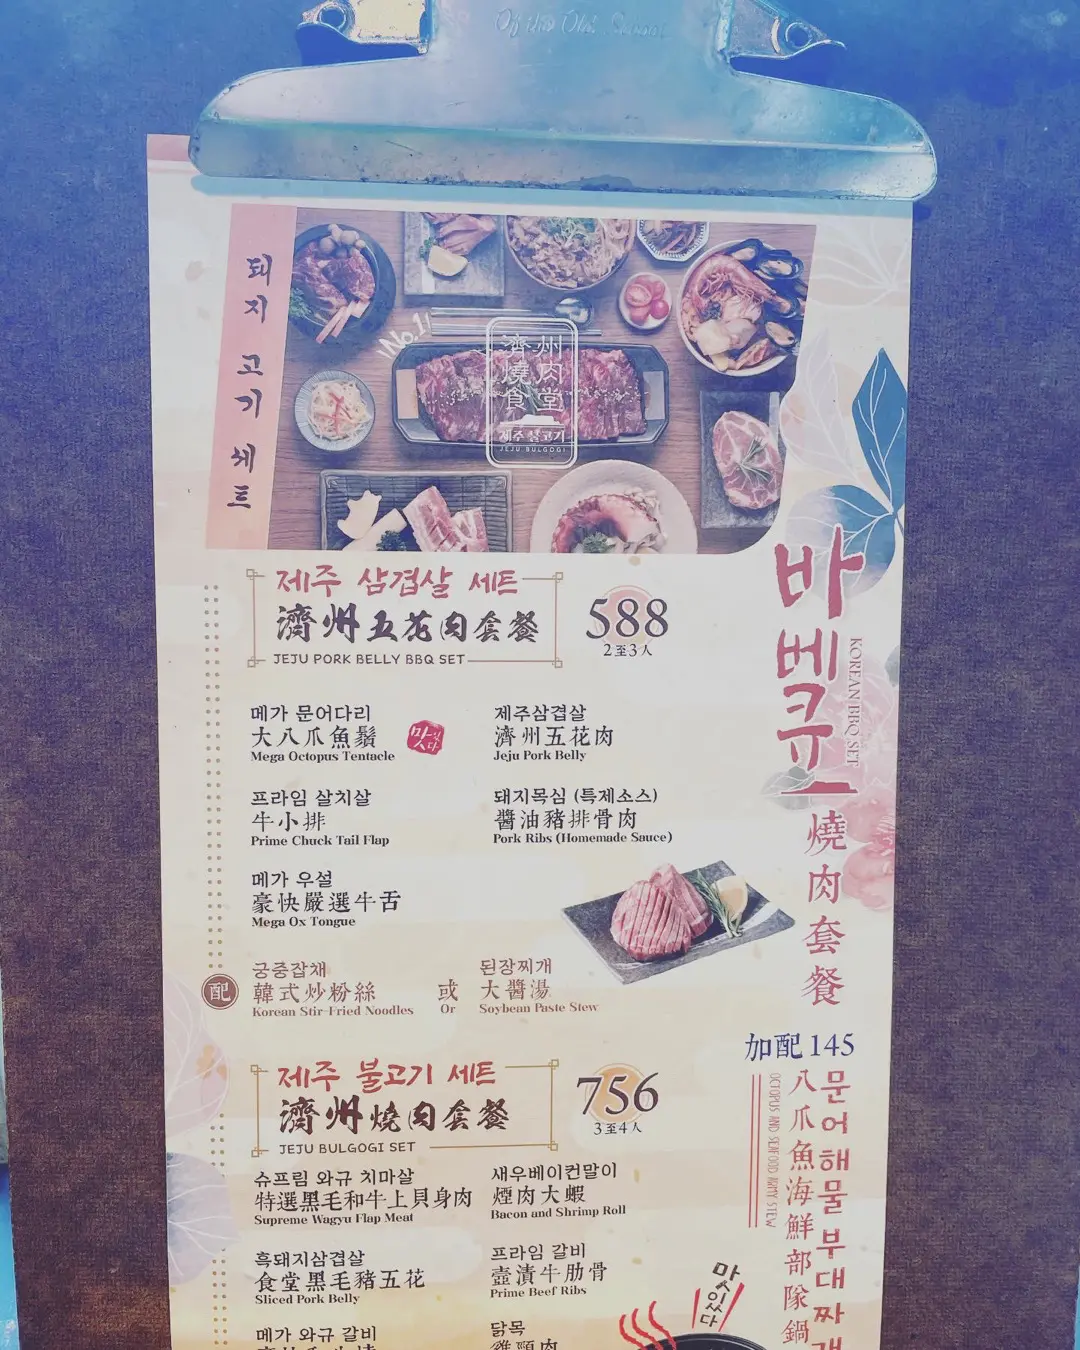 돼지 고기 세트
No.1!
濟州
燒肉
食堂
제주 불고기
JEJU BULGOGI
제주 삼겹살 세트
濟州五花肉套餐
JEJU PORK BELLY BBQ SET
588
2至3人
메가 문어다리
大八爪魚鬚
Mega Octopus Tentacle
맛있다
제주삼겹살
濟州五花肉
Jeju Pork Belly
프라임 살치살
牛小排
Prime Chuck Tail Flap
돼지목심 (특제소스)
醬油豬排骨肉
Pork Ribs (Homemade Sauce)
메가 우설
豪快嚴選牛舌
Mega Ox Tongue
配
궁중잡채
韓式炒粉絲
Korean Stir-Fried Noodles
或
Or
된장찌개
大醬湯
Soybean Paste Stew
제주 불고기 세트
濟州燒肉套餐
JEJU BULGOGI SET
756
3至4人
슈프림 와규 치마살
特選黑毛和牛上貝身肉
Supreme Wagyu Flap Meat
새우베이컨말이
煙肉大蝦
Bacon and Shrimp Roll
흑돼지삼겹살
食堂黑毛豬五花
Sliced Pork Belly
프라임 갈비
壺漬牛肋骨
Prime Beef Ribs
메가 와규 갈비
닭목
雞頸肉
바베큐
KOREAN BBQ SET
燒肉套餐
加配 145
문어해물부대짜개
八爪魚海鮮部隊鍋
OCTOPUS AND SEAFOOD ARMY STEW
맛있따